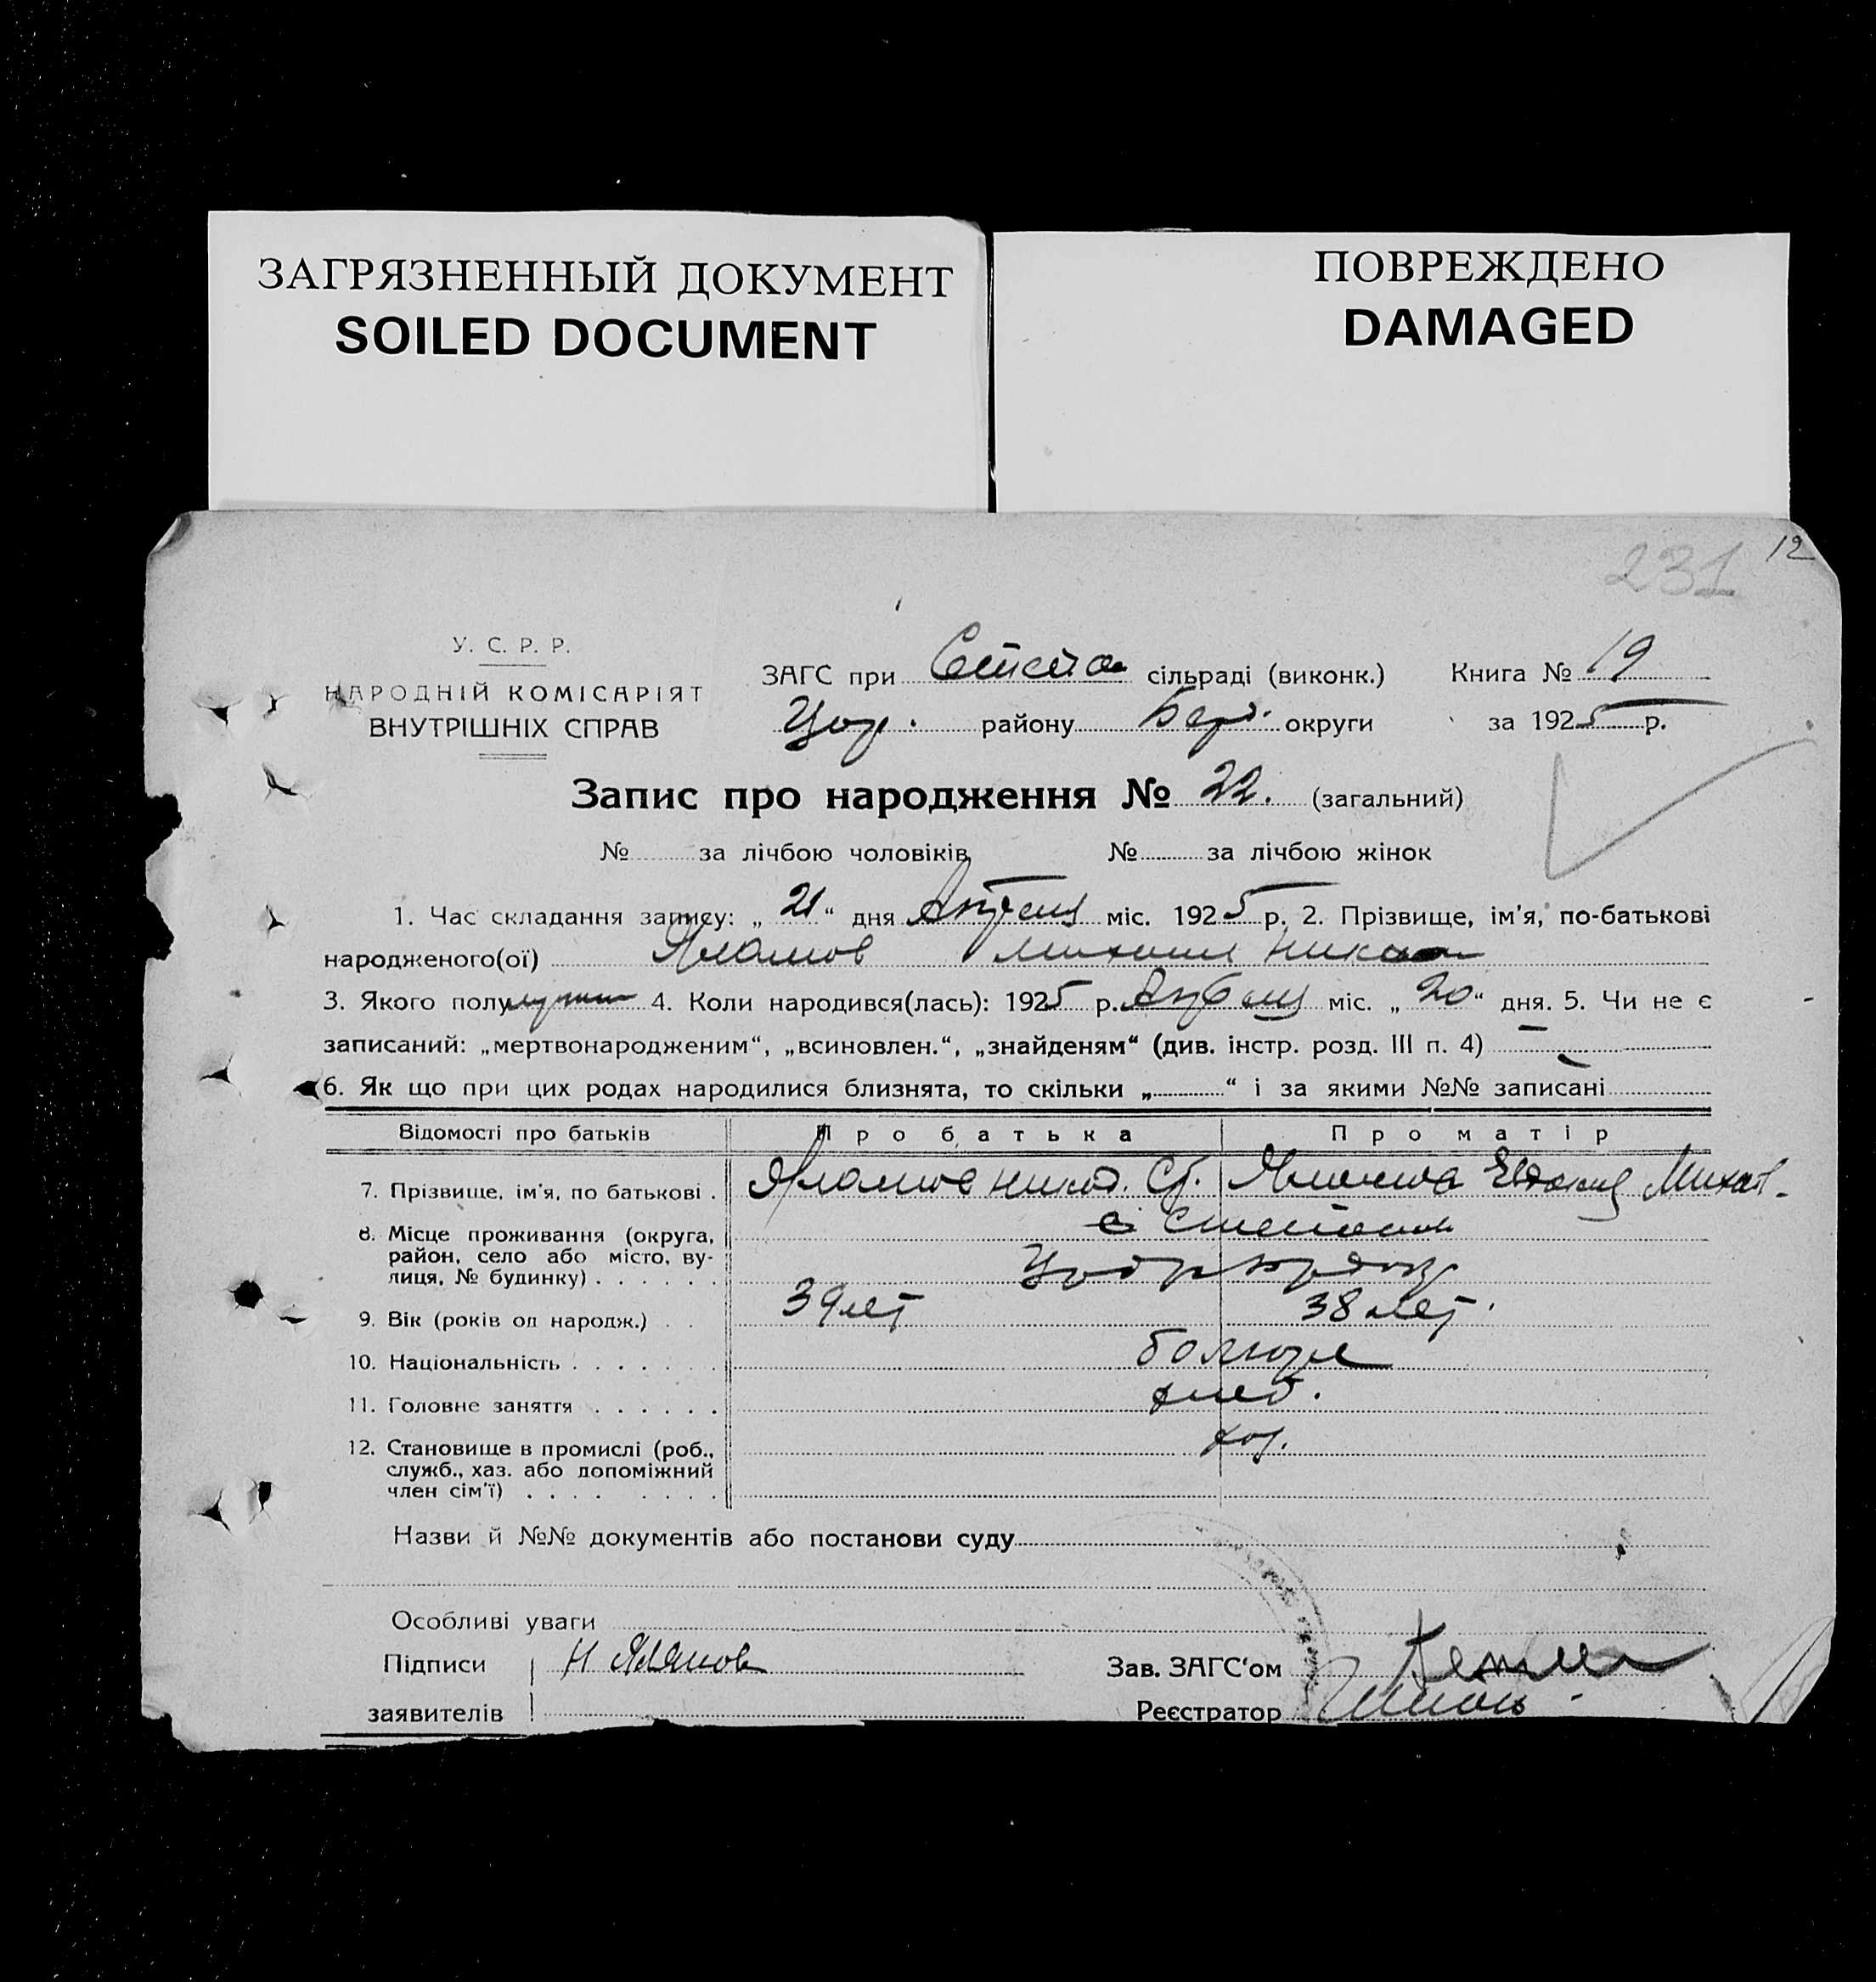 ЗАГРЯЗНЕННЫЙ ДОКУМЕНТ
SOILED DOCUMENT
ПОВРЕЖДЕНО
DAMAGED
231 12
У. С. Р. Р.
НАРОДНІЙ КОМІСАРІЯТ
ВНУТРІШНІХ СПРАВ
ЗАГС при сільраді (виконк.) Книга № 19
району округи за 1925 р.
Запис про народження № 22. (загальний)
№ за лічбою чоловіків № за лічбою жінок
1. Час складання запису: „ 21 “ дня Апреля міс. 1925 р. 2. Прізвище, ім'я, по-батькові
народженого(ої) Михаил
3. Якого полу 4. Коли народився(лась): 1925 р. Апреля міс. „ 20 “ дня. 5. Чи не є
записаний: „мертвонародженим“, „всиновлен.“, „знайденям“ (див. інстр. розд. III п. 4) —
6. Як що при цих родах народилися близнята, то скільки „ “ і за якими №№ записані
Відомості про батьків Про батька Про матір
7. Прізвище, ім'я, по батькові . Евдокия Михайл.
8. Місце проживання (округа,
район, село або місто, ву-
лиця, № будинку) . . . . . .
9. Вік (років од народж.) . . 39 лет 38 лет.
10. Національність . . . . . . .
11. Головне заняття . . . . . . хлеб.
12. Становище в промислі (роб.,
служб., хаз. або допоміжний
член сім'ї) . . . . . . . . хоз.
Назви й №№ документів або постанови суду
Особливі уваги
Підписи Зав. ЗАГС'ом
заявителів Реєстратор